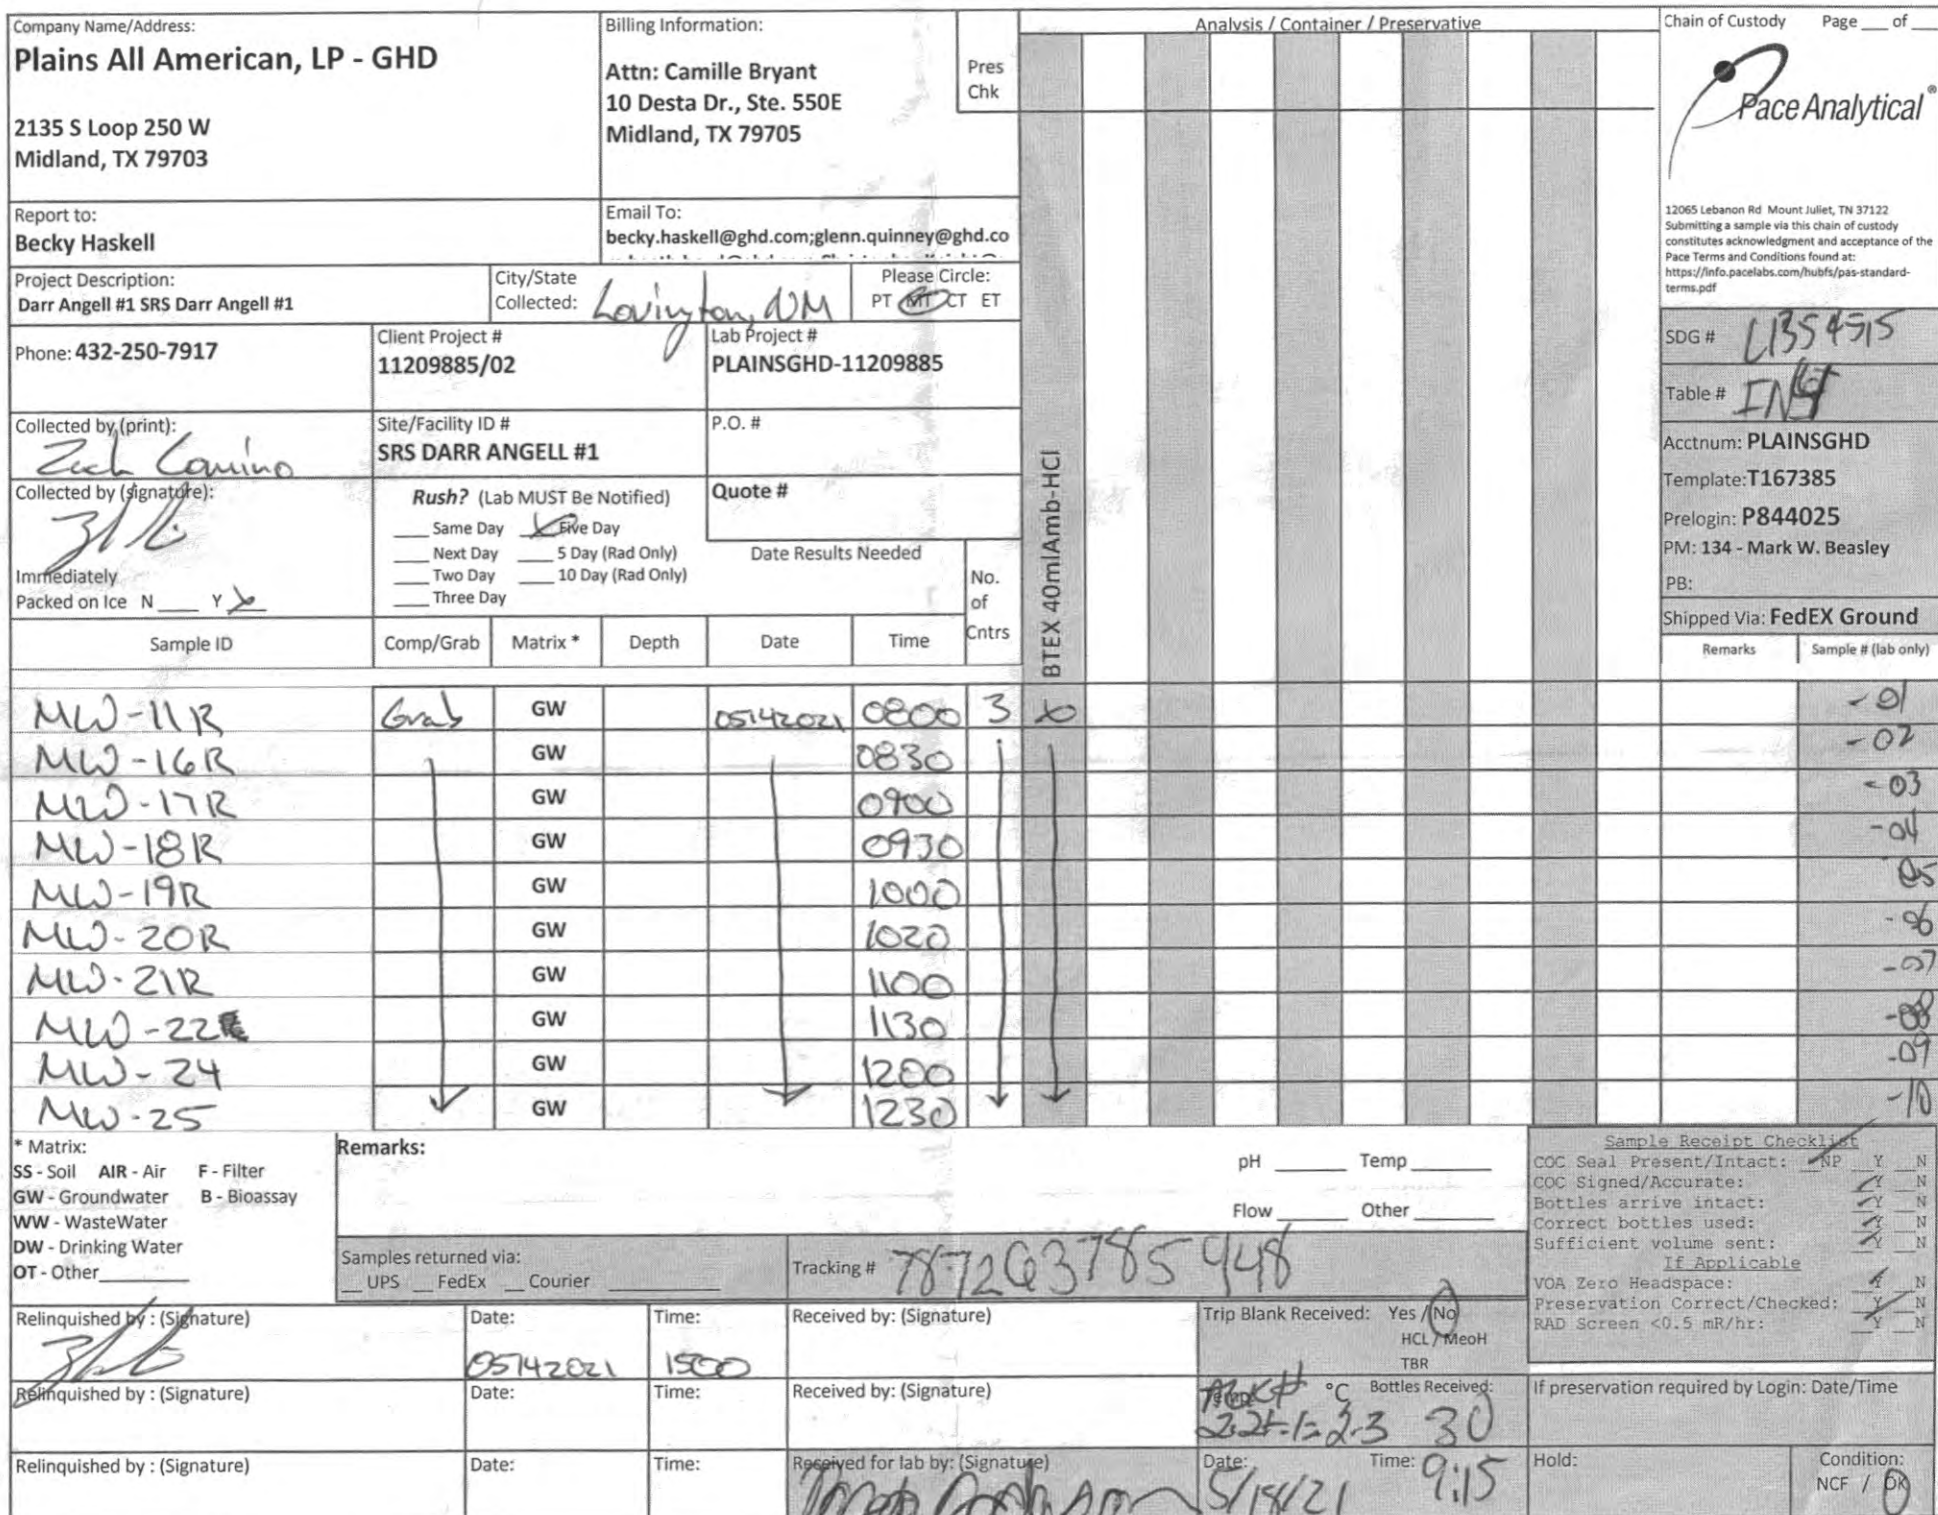 Company Name/Address:
Plains All American, LP - GHD
2135 S Loop 250 W
Midland, TX 79703
Billing Information:
Attn: Camille Bryant
10 Desta Dr., Ste. 550E
Midland, TX 79705
Pres
Chk
Analysis / Container / Preservative
Chain of Custody Page ___ of ___
Pace Analytical®
12065 Lebanon Rd Mount Juliet, TN 37122
Submitting a sample via this chain of custody
constitutes acknowledgment and acceptance of the
Pace Terms and Conditions found at:
https://info.pacelabs.com/hubfs/pas-standard-
terms.pdf
Report to:
Becky Haskell
Email To:
becky.haskell@ghd.com;glenn.quinney@ghd.co
Project Description:
Darr Angell #1 SRS Darr Angell #1
City/State
Collected: Lovington, NM
Please Circle:
PT MT CT ET
Phone: 432-250-7917
Client Project #
11209885/02
Lab Project #
PLAINSGHD-11209885
SDG # L1354515
Table #
Acctnum: PLAINSGHD
Template: T167385
Prelogin: P844025
PM: 134 - Mark W. Beasley
PB:
Shipped Via: FedEX Ground
Collected by (print):
Zach Comino
Site/Facility ID #
SRS DARR ANGELL #1
P.O. #
Collected by (signature):
Rush? (Lab MUST Be Notified)
___ Same Day ___ Five Day
___ Next Day ___ 5 Day (Rad Only)
___ Two Day ___ 10 Day (Rad Only)
___ Three Day
Quote #
Date Results Needed
Immediately
Packed on Ice N ___ Y X
No.
of
Cntrs
BTEX 40mlAmb-HCl
Sample ID Comp/Grab Matrix * Depth Date Time Remarks Sample # (lab only)
MW-11R Grab GW 05142021 0800 3 X -01
MW-16R GW 0830 -02
MW-17R GW 0900 -03
MW-18R GW 0930 -04
MW-19R GW 1000 05
MW-20R GW 1020 -06
MW-21R GW 1100 -07
MW-22 GW 1130 -08
MW-24 GW 1200 -09
MW-25 GW 1230 -10
* Matrix:
SS - Soil AIR - Air F - Filter
GW - Groundwater B - Bioassay
WW - WasteWater
DW - Drinking Water
OT - Other
Remarks:
pH ___ Temp ___
Flow ___ Other ___
Samples returned via:
__ UPS __ FedEx __ Courier
Tracking # 787263785948
Sample Receipt Checklist
COC Seal Present/Intact: __NP __Y __N
COC Signed/Accurate: __Y __N
Bottles arrive intact: __Y __N
Correct bottles used: __Y __N
Sufficient volume sent: __Y __N
If Applicable
VOA Zero Headspace: __Y __N
Preservation Correct/Checked: __Y __N
RAD Screen <0.5 mR/hr: __Y __N
Relinquished by : (Signature)
Date:
05142021
Time:
1500
Received by: (Signature)
Trip Blank Received: Yes / No
HCL / MeoH
TBR
Relinquished by : (Signature)
Date:
Time:
Received by: (Signature)
°C
Bottles Received:
30
If preservation required by Login: Date/Time
Relinquished by : (Signature)
Date:
Time:
Received for lab by: (Signature)
Date:
5/18/21
Time: 9:15
Hold:
Condition:
NCF / OK